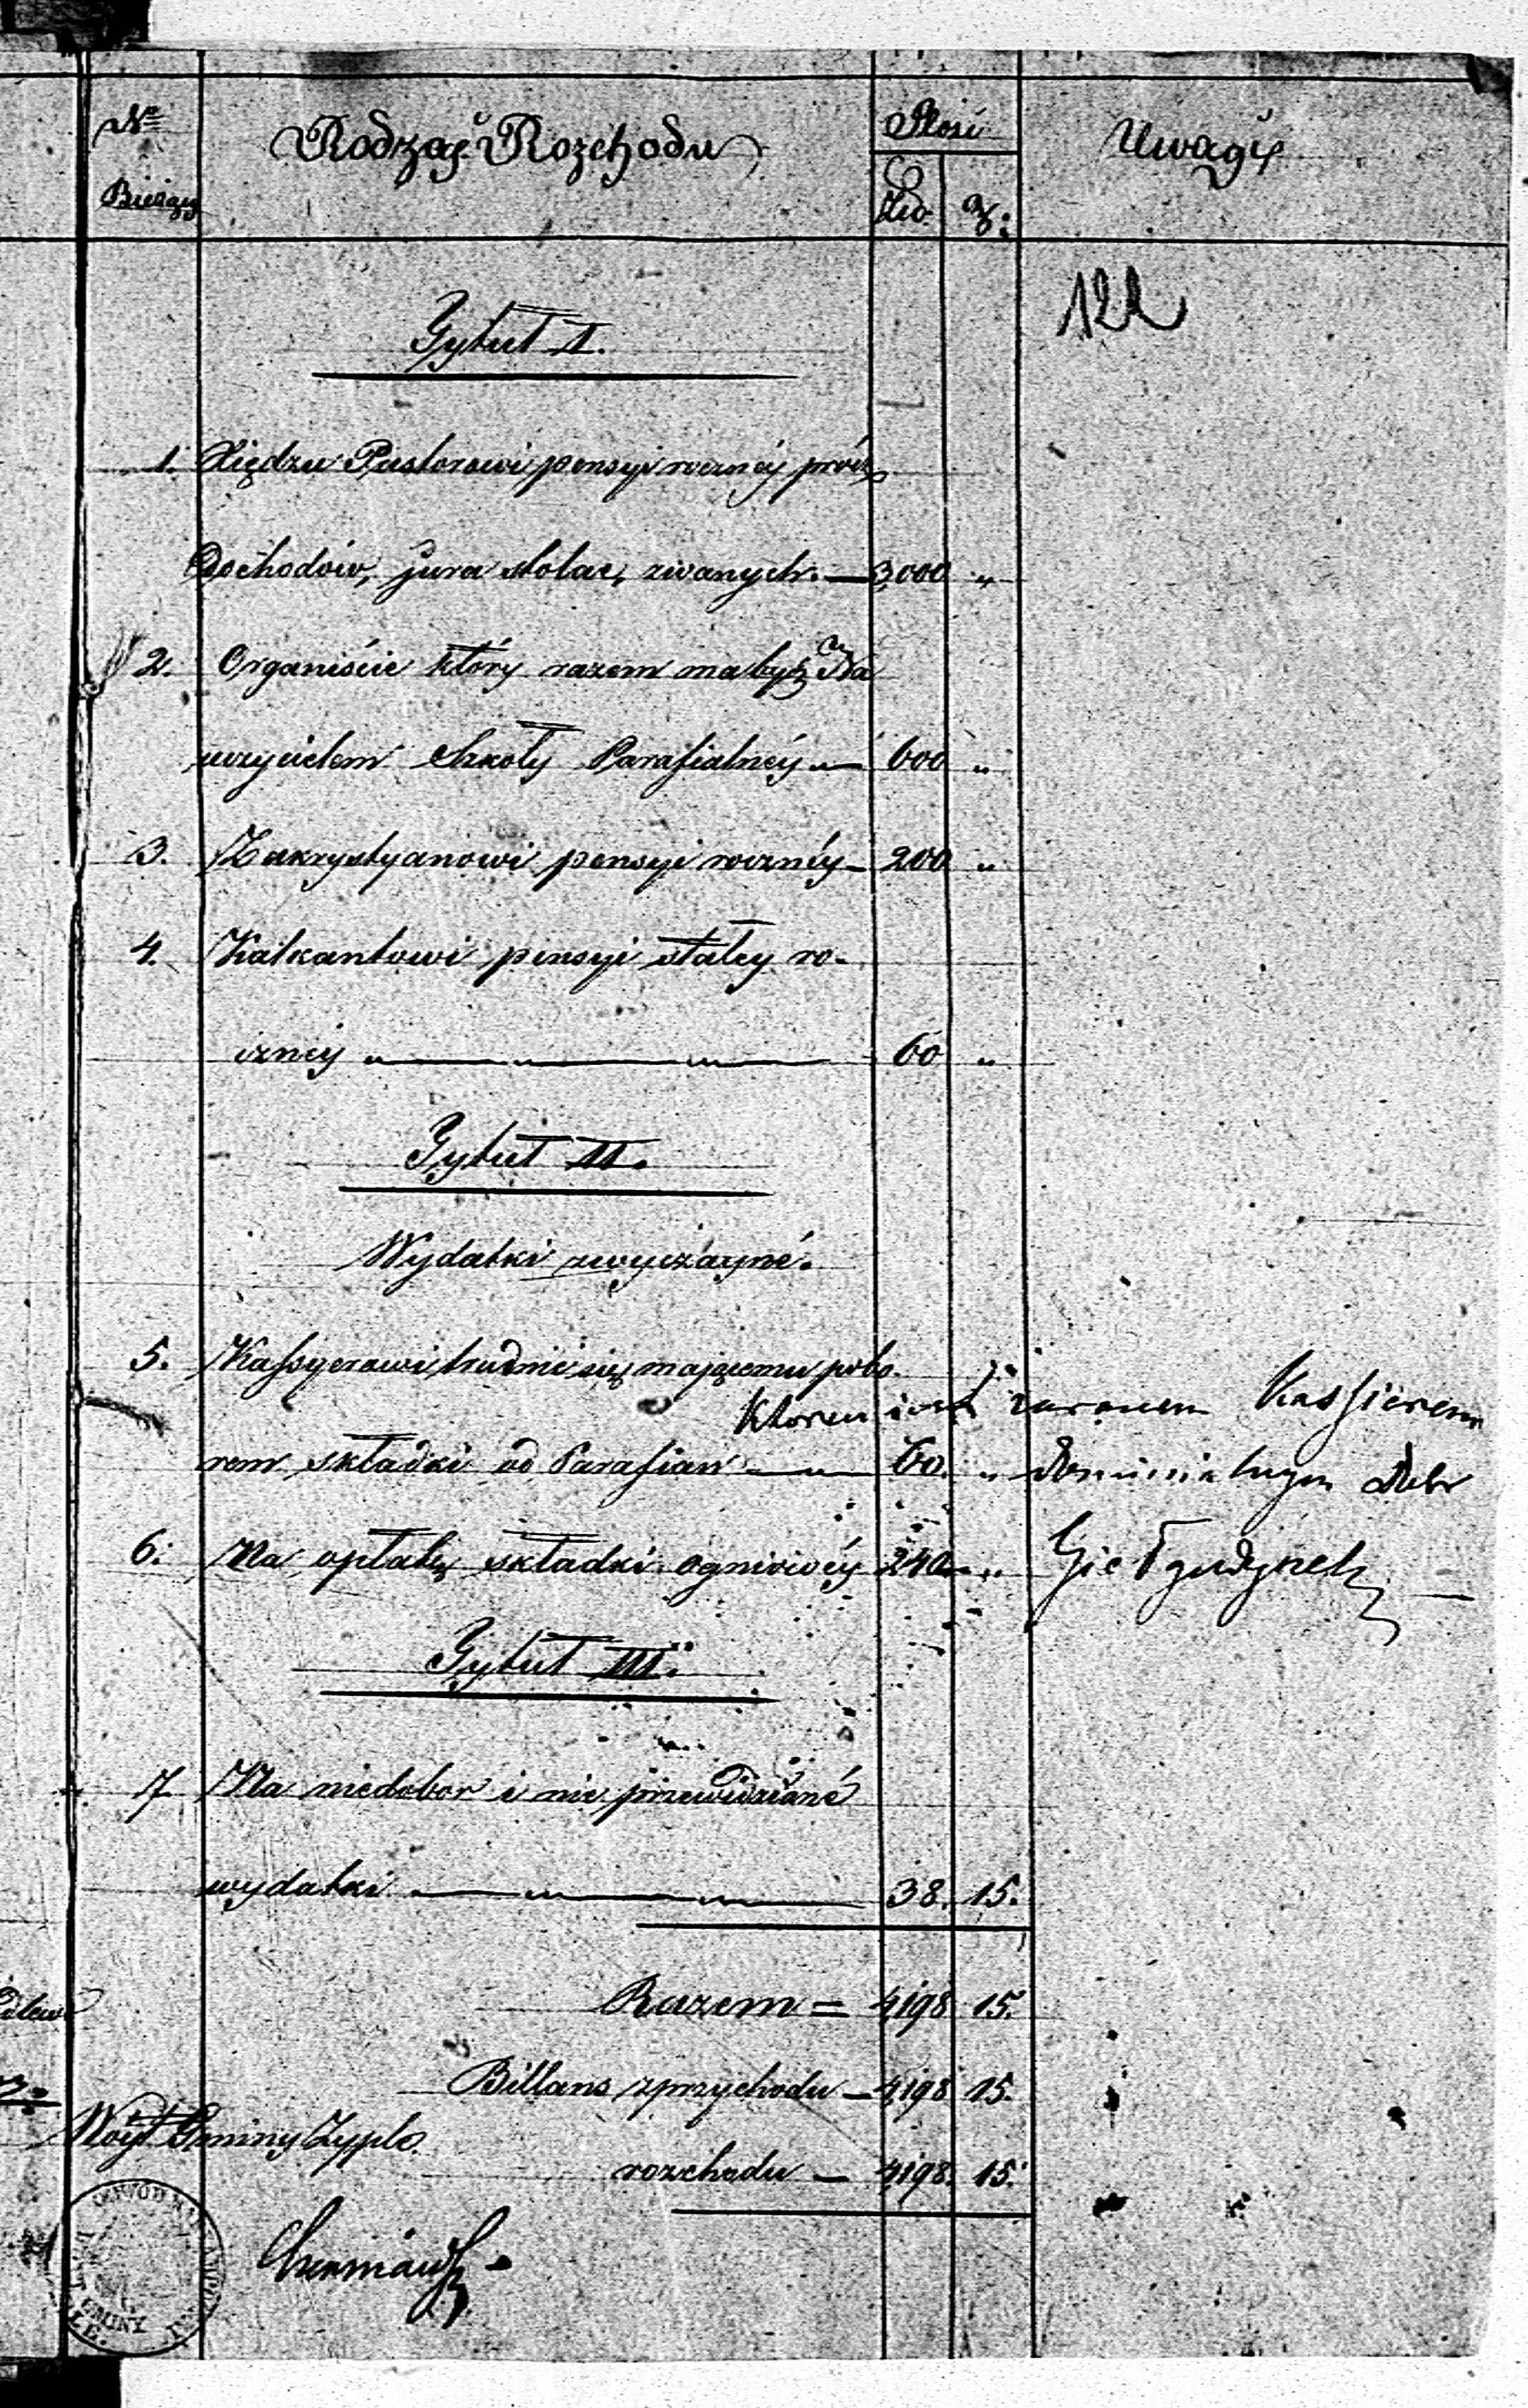 Nro Bieżący
Rodzaj Rozchodu
Ilość
Zło. gr.
Uwagi
122
Tytuł I.
1. Xiędzu Pastorowi pensyi rocznéy prócz
Dochodów, jura stolae, zwanych. — 3,000 "
2. Organiście który razem ma być Na
uczycielem Szkoły Parafialnéy — 600 "
3. Zakrystyanowi pensyi rocznéy — 200 "
4. Kalkantowi pensyi stałey ro-
cznéy " — " — " — 60 "
Tytuł II.
Wydatki zwyczayné.
5. Kassyerowi trudnić się maiącemu pobo-
rem składki od Parafian — " — 60. "
Którem iest zarazem Kassierem
Dominialnym Dobr
Giełgudyneh
6. Na opłatę składki ogniowéy 240 "
Tytuł III.
7. Na niedobor i nie przewidziané
wydatki — " — " — " — 38. 15.
Razem = 4,198 15.
Billans z przychodu — 4,198 15.
Woyt Gminy Zyple
rozchodu — 4,198. 15.
GMINY